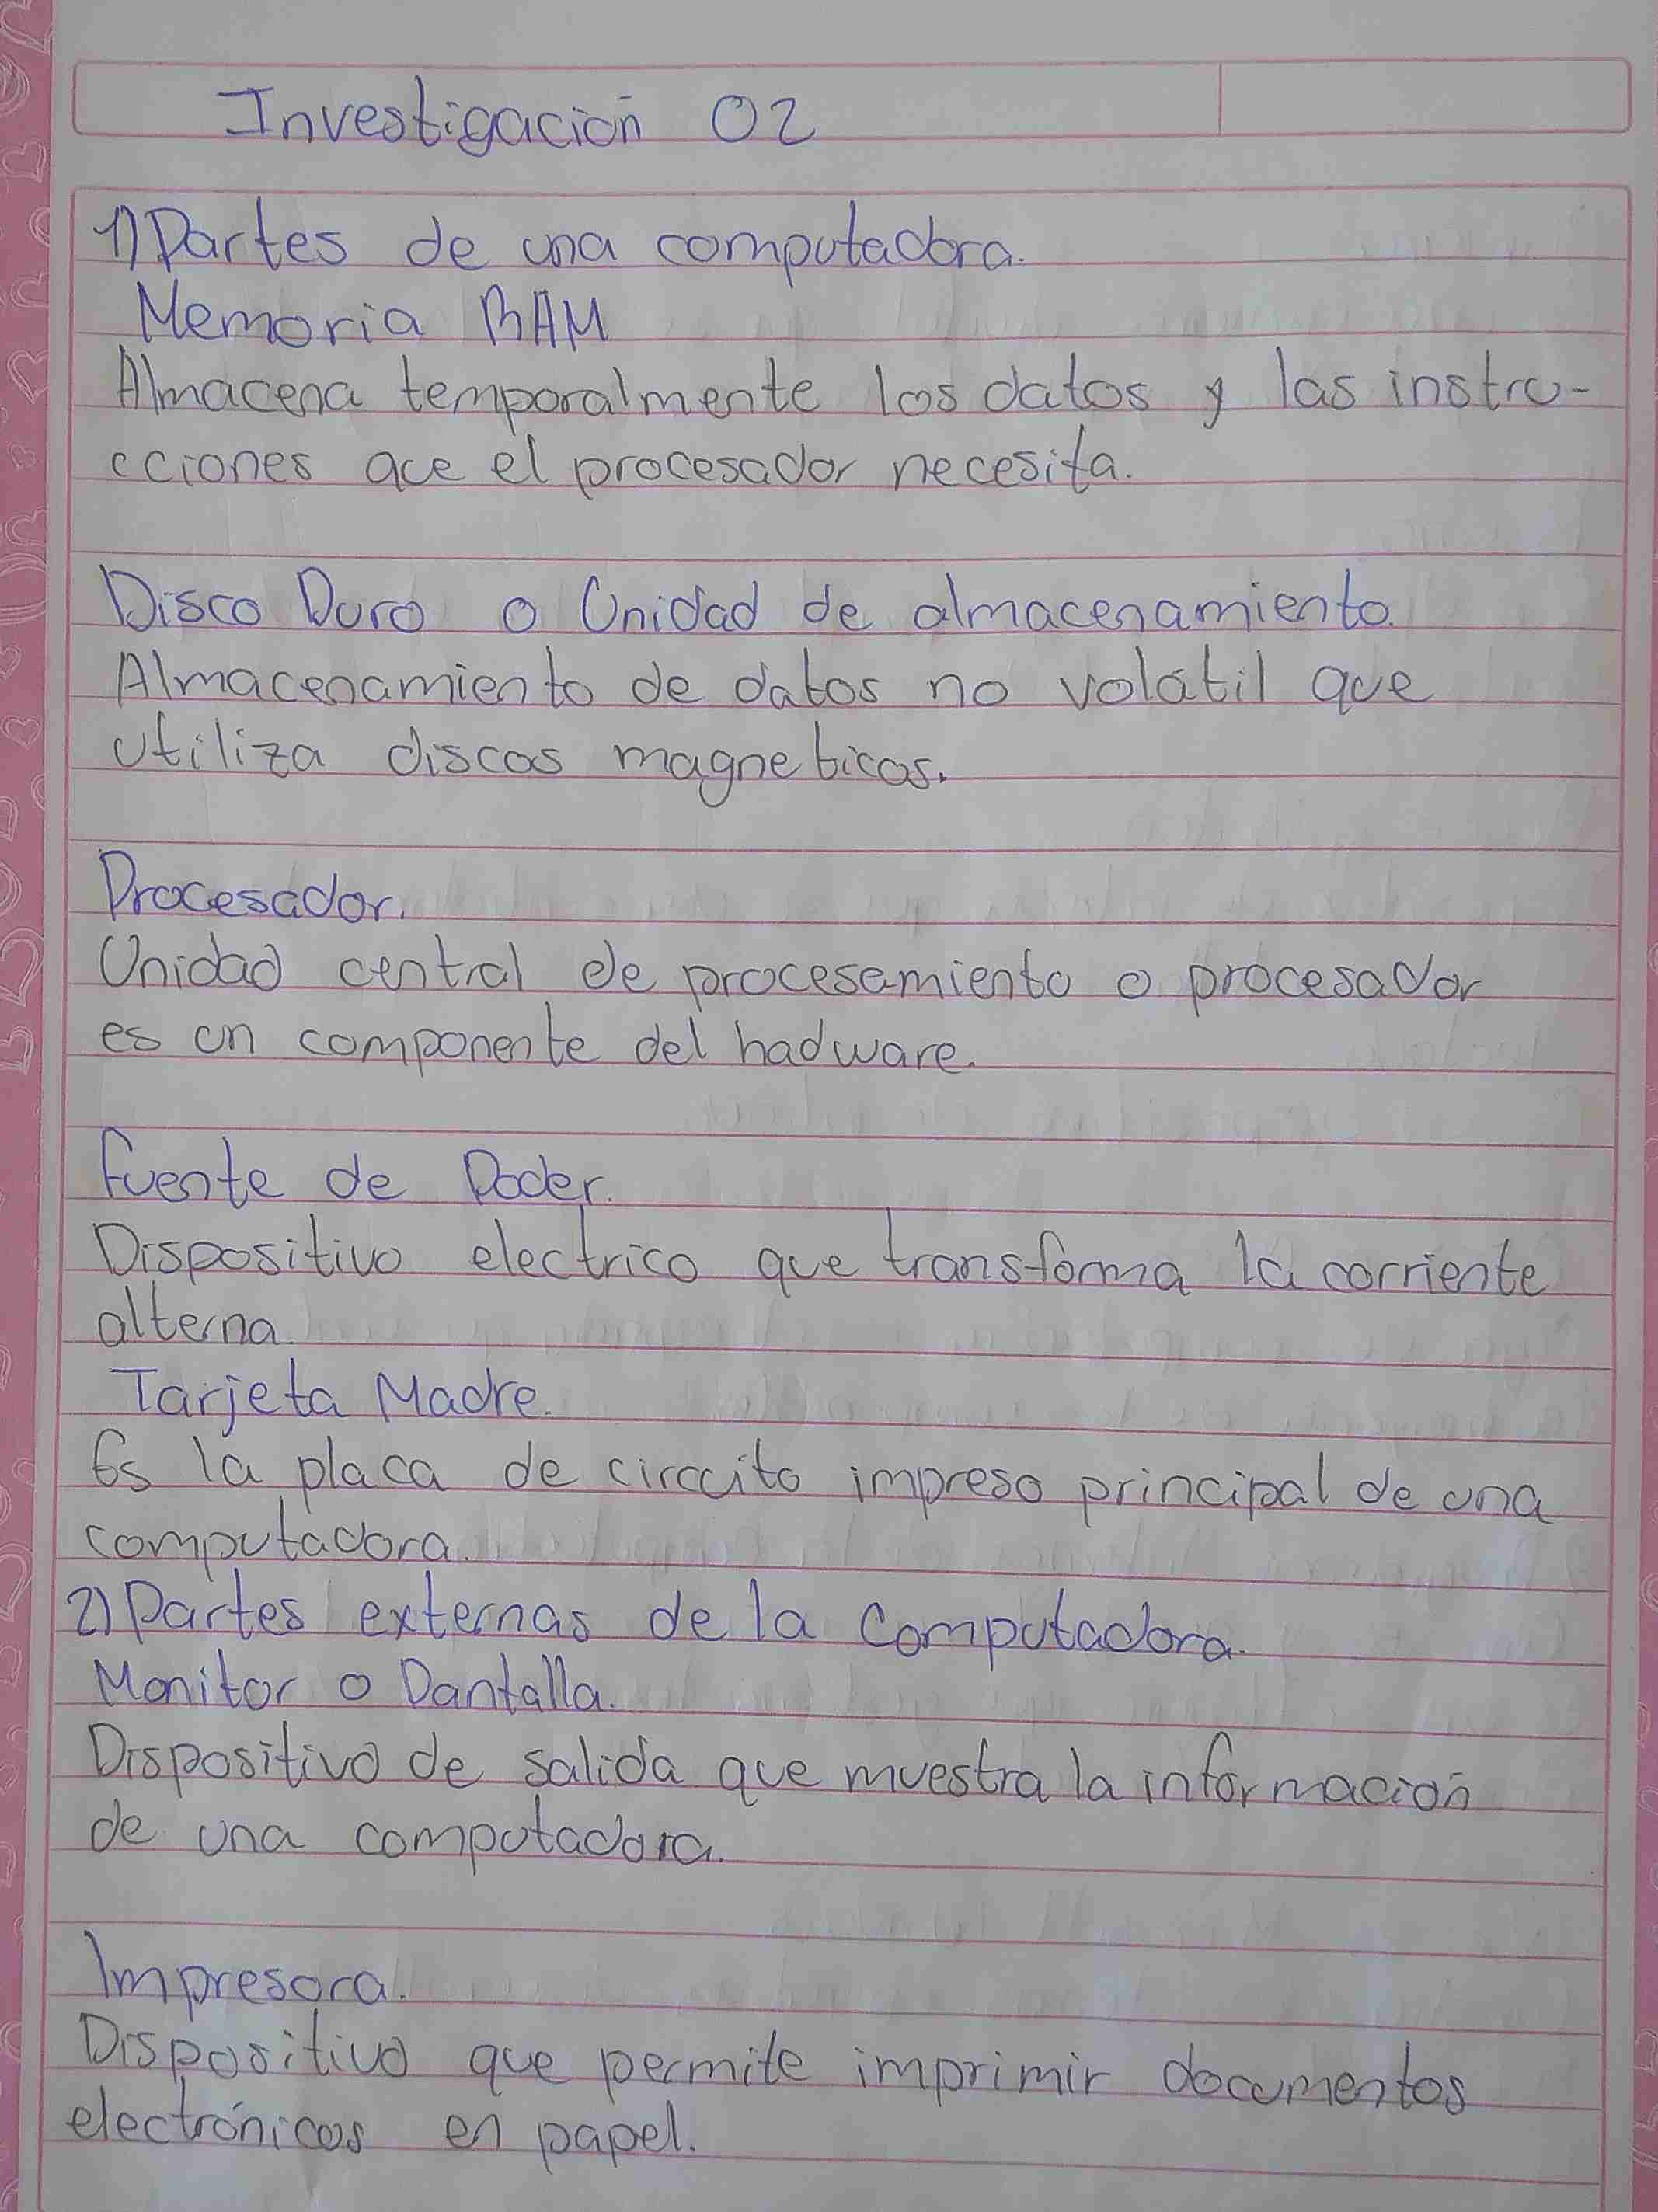 Investigación 02
1) Partes de una computadora.
Memoria RAM
Almacena temporalmente los datos y las instru-
cciones que el procesador necesita.
Disco Duro o Unidad de almacenamiento.
Almacenamiento de datos no volátil que
utiliza discos magneticos.
Procesador.
Unidad central de procesamiento o procesador
es un componente del hadware.
Fuente de Poder.
Dispositivo electrico que transforma la corriente
alterna.
Tarjeta Madre.
Es la placa de circuito impreso principal de una
computadora.
2) Partes externas de la Computadora.
Monitor o Pantalla.
Dispositivo de salida que muestra la información
de una computadora.
Impresora.
Dispositivo que permite imprimir documentos
electrónicos en papel.